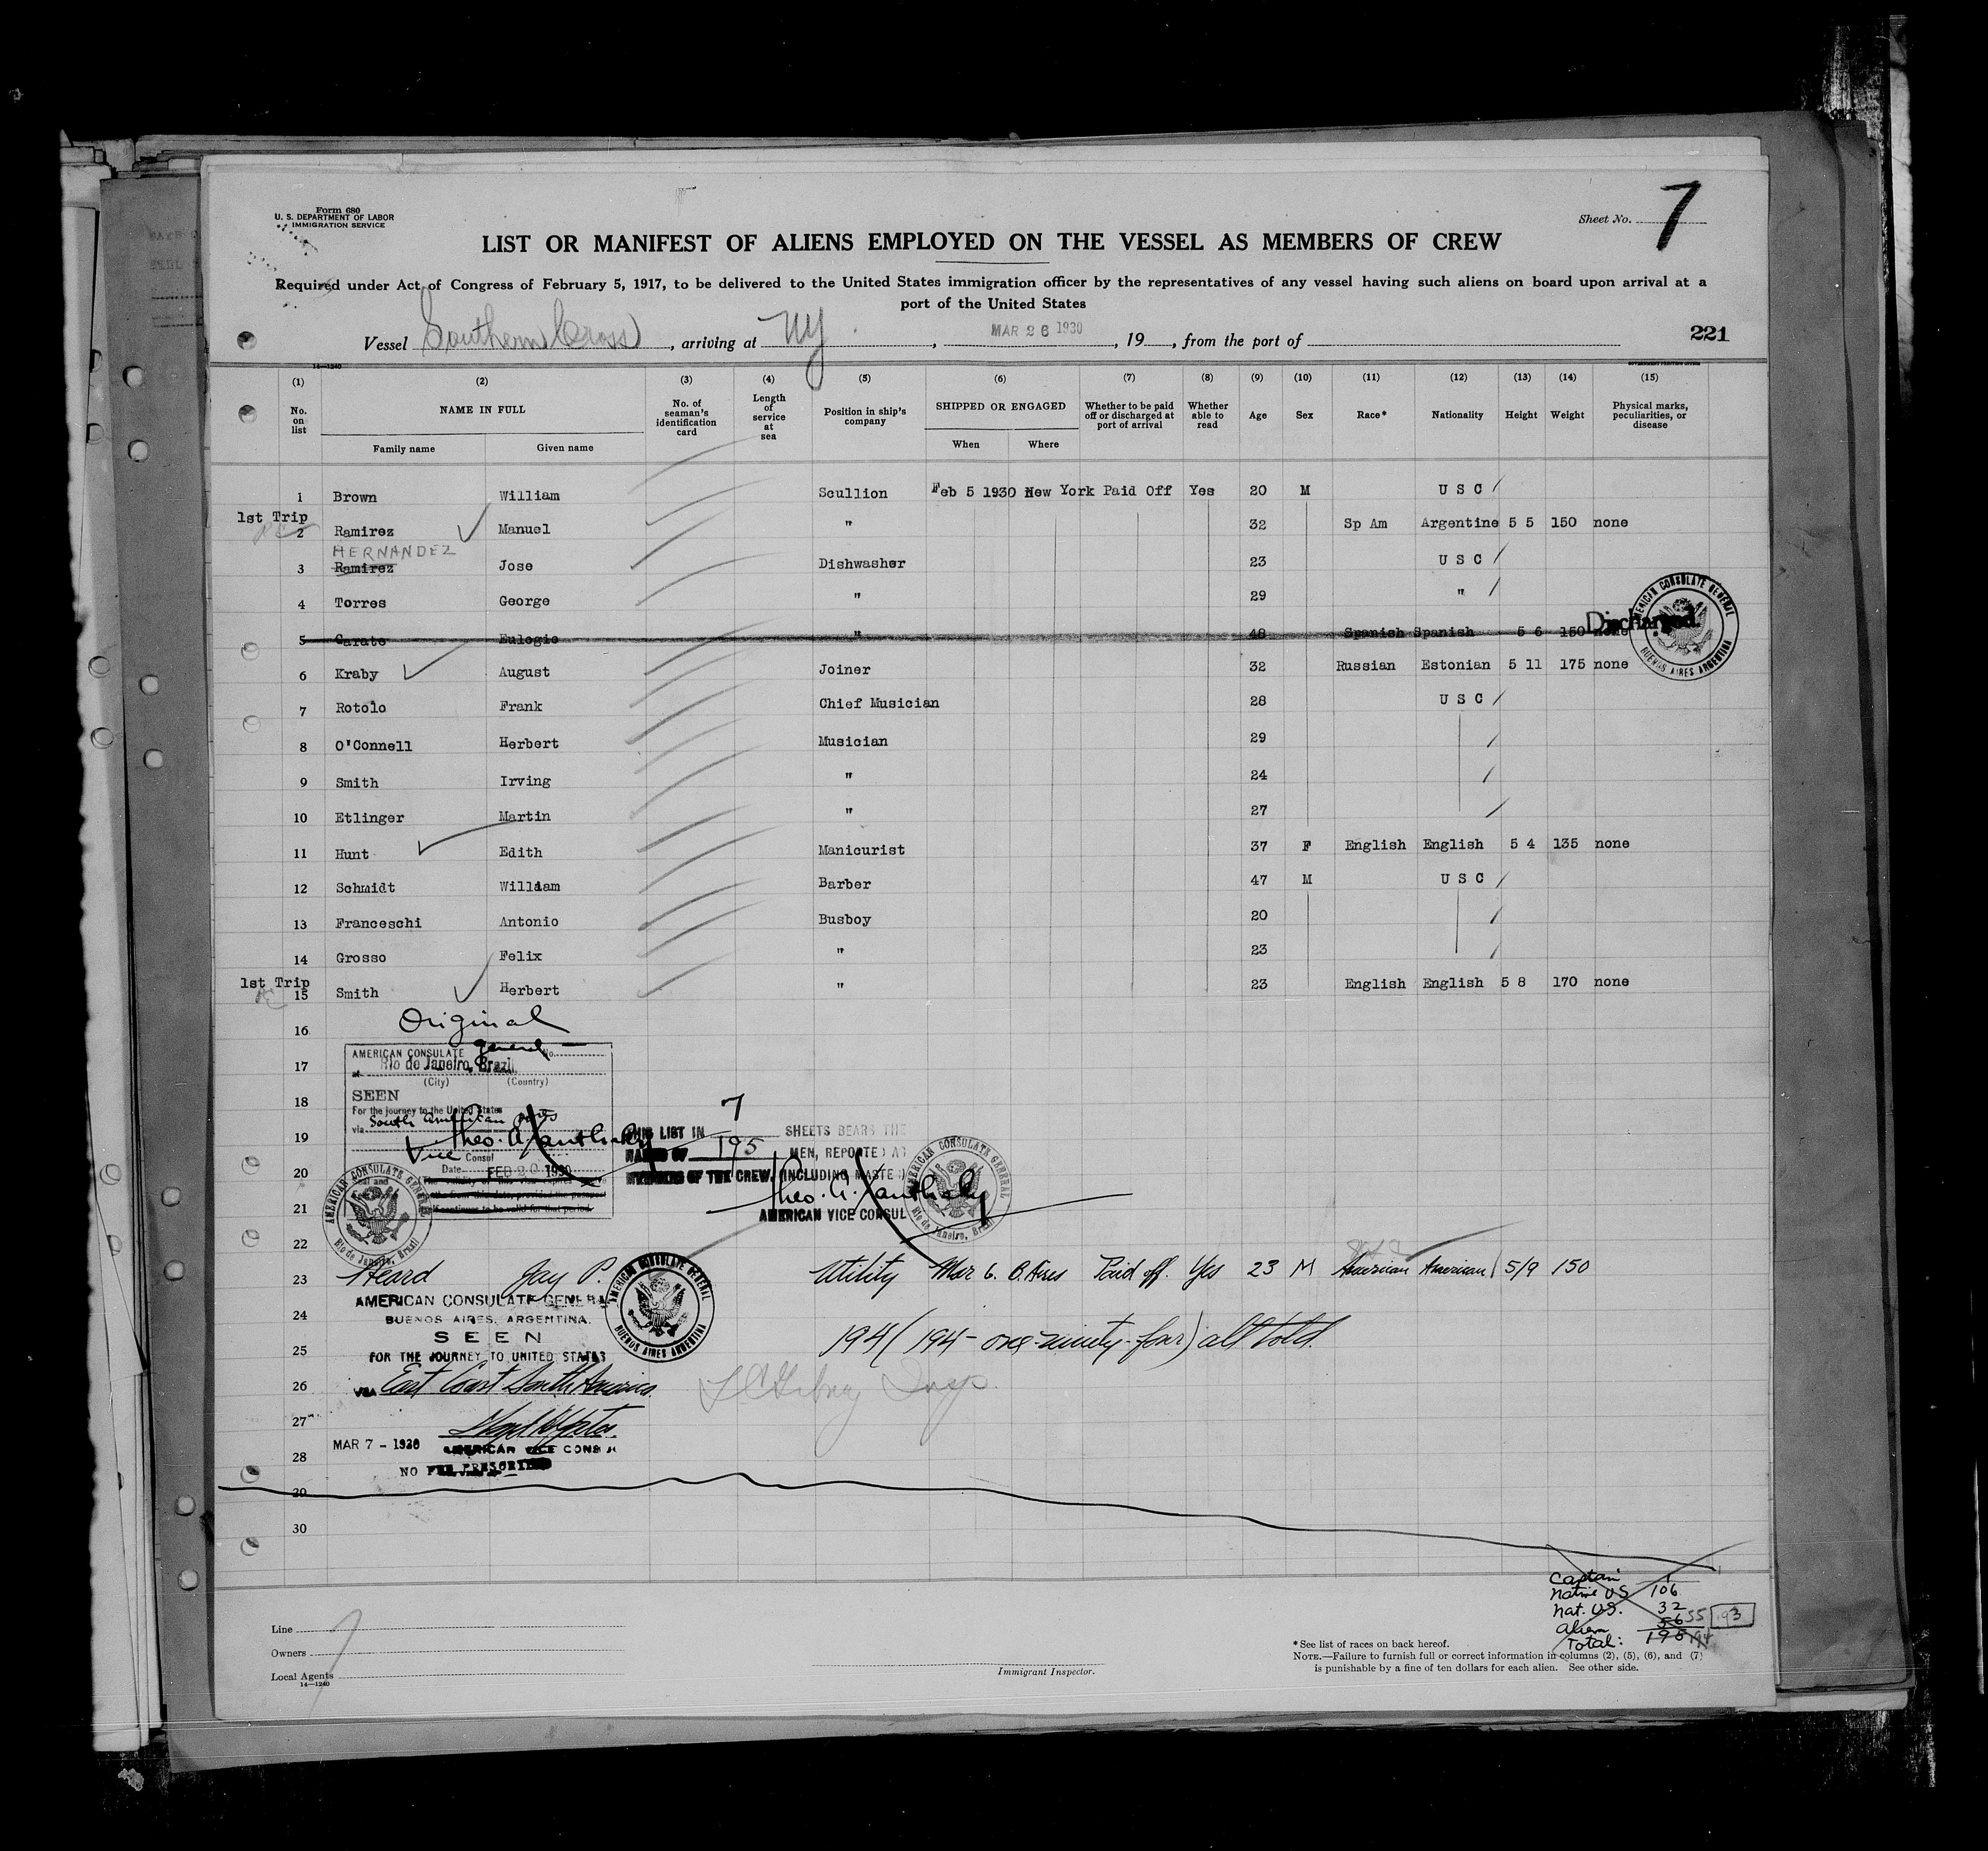 Form 680
U. S. DEPARTMENT OF LABOR
IMMIGRATION SERVICE
Sheet No. 7
LIST OR MANIFEST OF ALIENS EMPLOYED ON THE VESSEL AS MEMBERS OF CREW
Required under Act of Congress of February 5, 1917, to be delivered to the United States immigration officer by the representatives of any vessel having such aliens on board upon arrival at a
port of the United States
Vessel Southern Cross, arriving at NY, MAR 26 1930, 19, from the port of
221
14—1240
(1) (2) (3) (4) (5) (6) (7) (8) (9) (10) (11) (12) (13) (14) (15)
No. on list
NAME IN FULL
Family name Given name
No. of seaman's identification card
Length of service at sea
Position in ship's company
SHIPPED OR ENGAGED
When Where
Whether to be paid off or discharged at port of arrival
Whether able to read
Age Sex Race* Nationality Height Weight
Physical marks, peculiarities, or disease
1 Brown William Scullion Feb 5 1930 New York Paid Off Yes 20 M U S C
1st Trip
2 Ramirez Manuel " 32 Sp Am Argentine 5 5 150 none
HERNANDEZ
3 Ramirez Jose Dishwasher 23 U S C
4 Torres George " 29 "
5 Garate Eulogio " 48 Spanish Spanish 5 6 150 none Discharged.
AMERICAN CONSULATE GENERAL BUENOS AIRES ARGENTINA
6 Kraby August Joiner 32 Russian Estonian 5 11 175 none
7 Rotolo Frank Chief Musician 28 U S C
8 O'Connell Herbert Musician 29
9 Smith Irving " 24
10 Etlinger Martin " 27
11 Hunt Edith Manicurist 37 F English English 5 4 135 none
12 Schmidt William Barber 47 M U S C
13 Franceschi Antonio Busboy 20
14 Grosso Felix " 23
1st Trip
15 Smith Herbert " 23 English English 5 8 170 none
16 Original
17
18
19
20
21
22
AMERICAN CONSULATE General No.
at Rio de Janeiro, Brazil
(City) (Country)
SEEN
For the journey to the United States
via South American ports
Theo. A. Xanthaky
Vice Consul
Date FEB 20 1930
AMERICAN CONSULATE GENERAL Rio de Janeiro, Brazil
7
THIS LIST IN SHEETS BEARS THE
NAMES OF 195 MEN, REPORTED AS
MEMBERS OF THE CREW, (INCLUDING MASTER)
Theo. A. Xanthaky
AMERICAN VICE CONSUL
AMERICAN CONSULATE GENERAL Rio de Janeiro, Brazil
23 Heard Jay P. Utility Mar 6. B. Aires Paid off. Yes 23 M American American 5/9 150
24
25
26
27
28
29
30
AMERICAN CONSULATE GENERAL
BUENOS AIRES, ARGENTINA.
SEEN
FOR THE JOURNEY TO UNITED STATES
VIA East Coast South America
MAR 7 - 1930 AMERICAN VICE CONSUL
NO FEE PRESCRIBED
AMERICAN CONSULATE GENERAL BUENOS AIRES ARGENTINA
194 (194 - one-ninety-four) all told.
Captain 1
Native US 106
Nat. US. 32
Alien 56 55 193
Total: 195 194
Line
Owners
Local Agents
14—1240
Immigrant Inspector.
*See list of races on back hereof.
NOTE.—Failure to furnish full or correct information in columns (2), (5), (6), and (7)
is punishable by a fine of ten dollars for each alien. See other side.